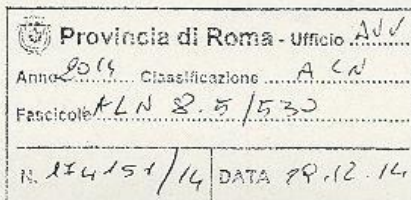 Provincia di Roma - Ufficio AVV
Anno 2014 Classificazione ALN
Fascicolo ALN 8.5/530
N. 174151/14 DATA 29.12.14